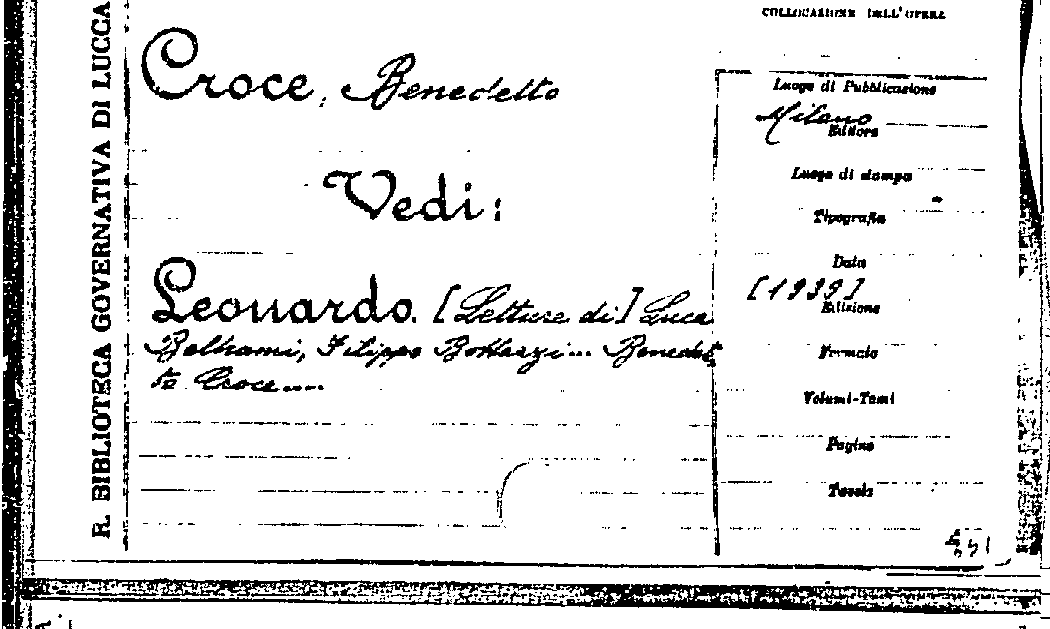 R. BIBLIOTECA GOVERNATIVA DI LUCCA
COLLOCAZIONE DELL'OPERA
Croce, Benedetto
Vedi:
Leonardo. [Letture di] Luca
Beltrami, Filippo Bottazzi... Benedet
to Croce....
Luogo di Pubblicazione
Milano
Editore
Luogo di stampa
Tipografia
Data
[1939]
Edizione
Formato
Volumi-Tomi
Pagine
Tavole